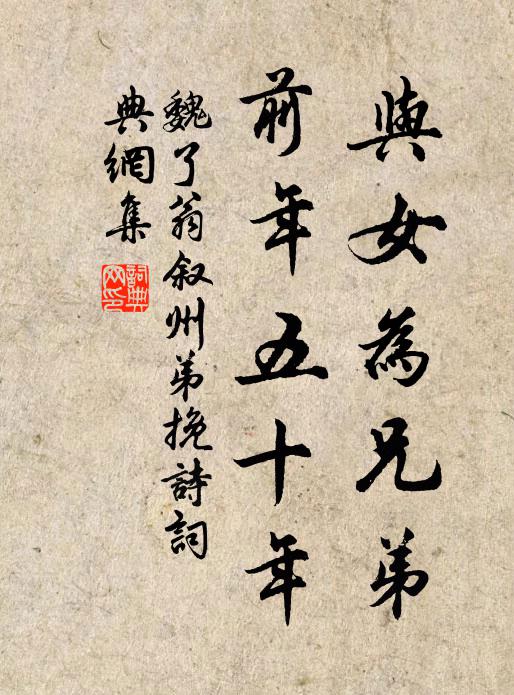 與女為兄弟
前年五十年
魏了翁叙州弟挽詩詞
典網集
詞典
网印